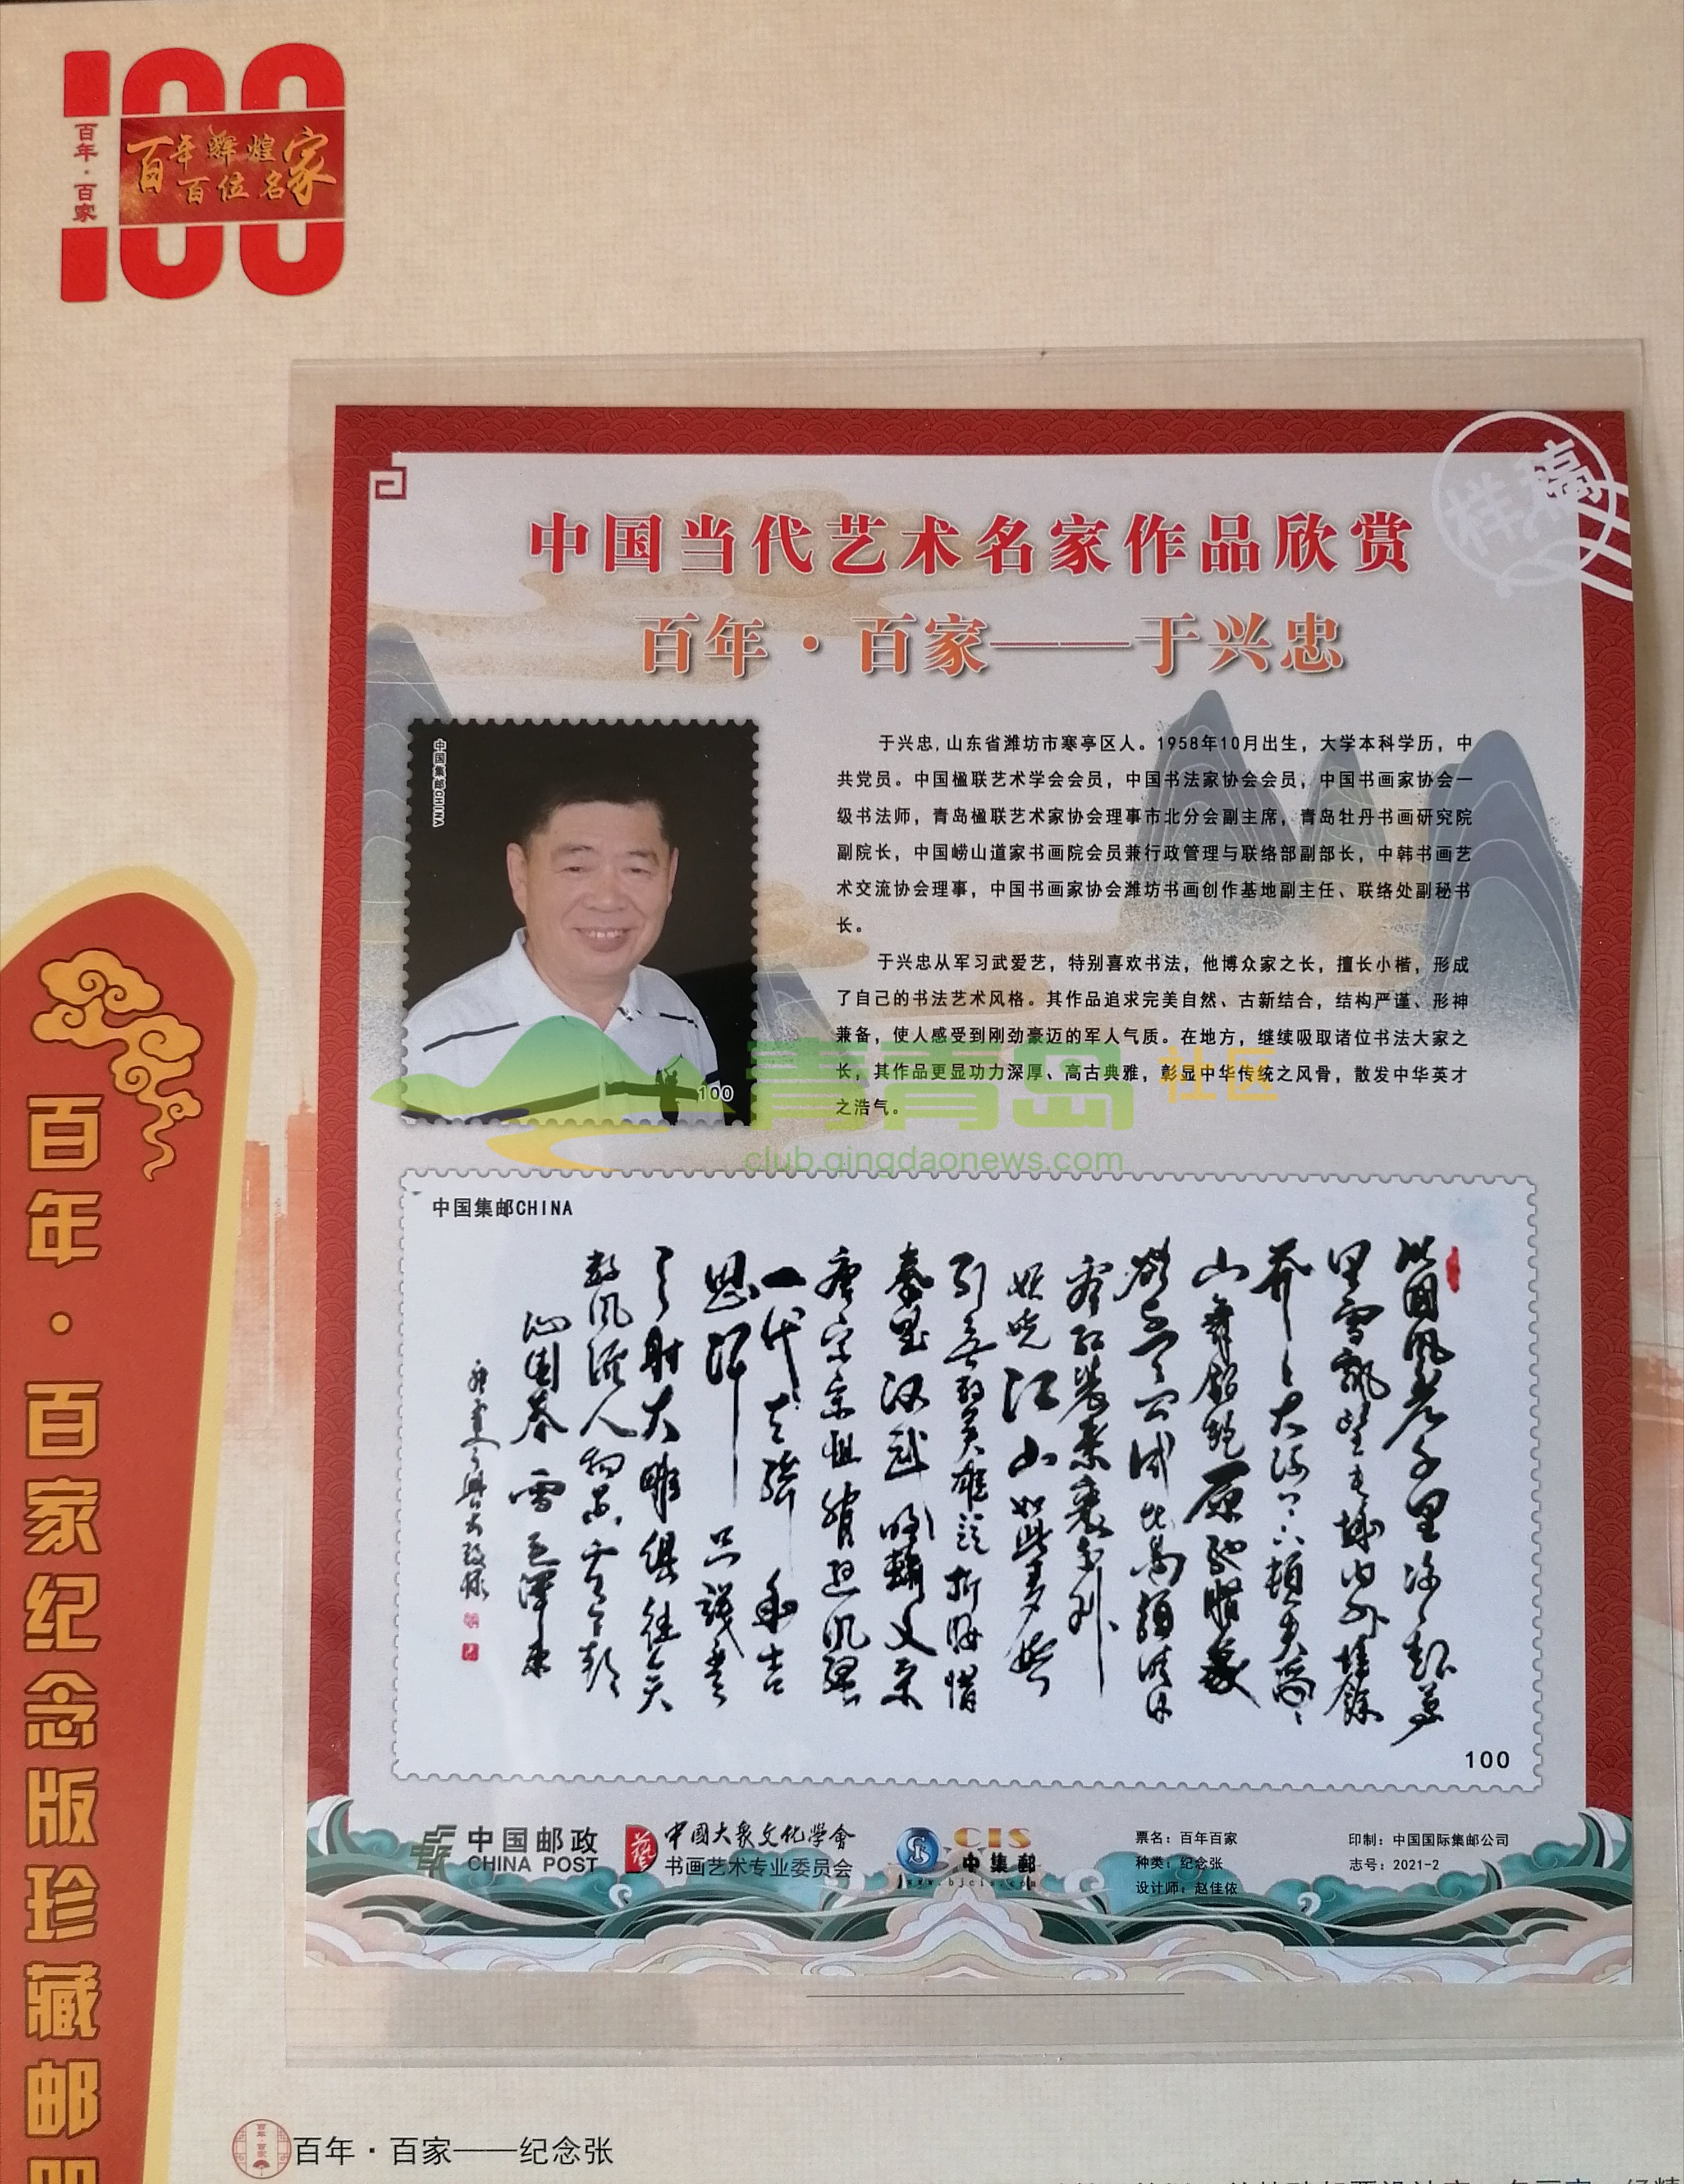 100
百年·百家
百年辉煌
百位名家
样稿
中国当代艺术名家作品欣赏
百年·百家——于兴忠
中国集邮CHINA
100
于兴忠,山东省潍坊市寒亭区人。1958年10月出生，大学本科学历，中
共党员。中国楹联艺术学会会员，中国书法家协会会员，中国书画家协会一
级书法师，青岛楹联艺术家协会理事市北分会副主席，青岛牡丹书画研究院
副院长，中国崂山道家书画院会员兼行政管理与联络部副部长，中韩书画艺
术交流协会理事，中国书画家协会潍坊书画创作基地副主任、联络处副秘书
长。
于兴忠从军习武爱艺，特别喜欢书法，他博众家之长，擅长小楷，形成
了自己的书法艺术风格。其作品追求完美自然、古新结合，结构严谨、形神
兼备，使人感受到刚劲豪迈的军人气质。在地方，继续吸取诸位书法大家之
长，其作品更显功力深厚、高古典雅，彰显中华传统之风骨，散发中华英才
之浩气。
青青岛 社区
club.qingdaonews.com
中国集邮CHINA
北国风光千里冰封万
里雪飘望长城内外惟余
莽莽大河上下顿失滔滔
山舞银蛇原驰蜡象
欲与天公试比高须晴日
看红装素裹分外
妖娆江山如此多娇
引无数英雄竞折腰惜
秦皇汉武略输文采
唐宗宋祖稍逊风骚
一代天骄成吉
思汗只识弯
弓射大雕俱往矣
数风流人物还看今朝
沁园春 雪 毛泽东
100
中国邮政
CHINA POST
中國大衆文化學會
书画艺术专业委员会
CIS
中集邮
www.bjcis.com
票名：百年百家
种类：纪念张
设计师：赵佳依
印制：中国国际集邮公司
志号：2021-2
百年·百家纪念版珍藏邮册
百年·百家——纪念张